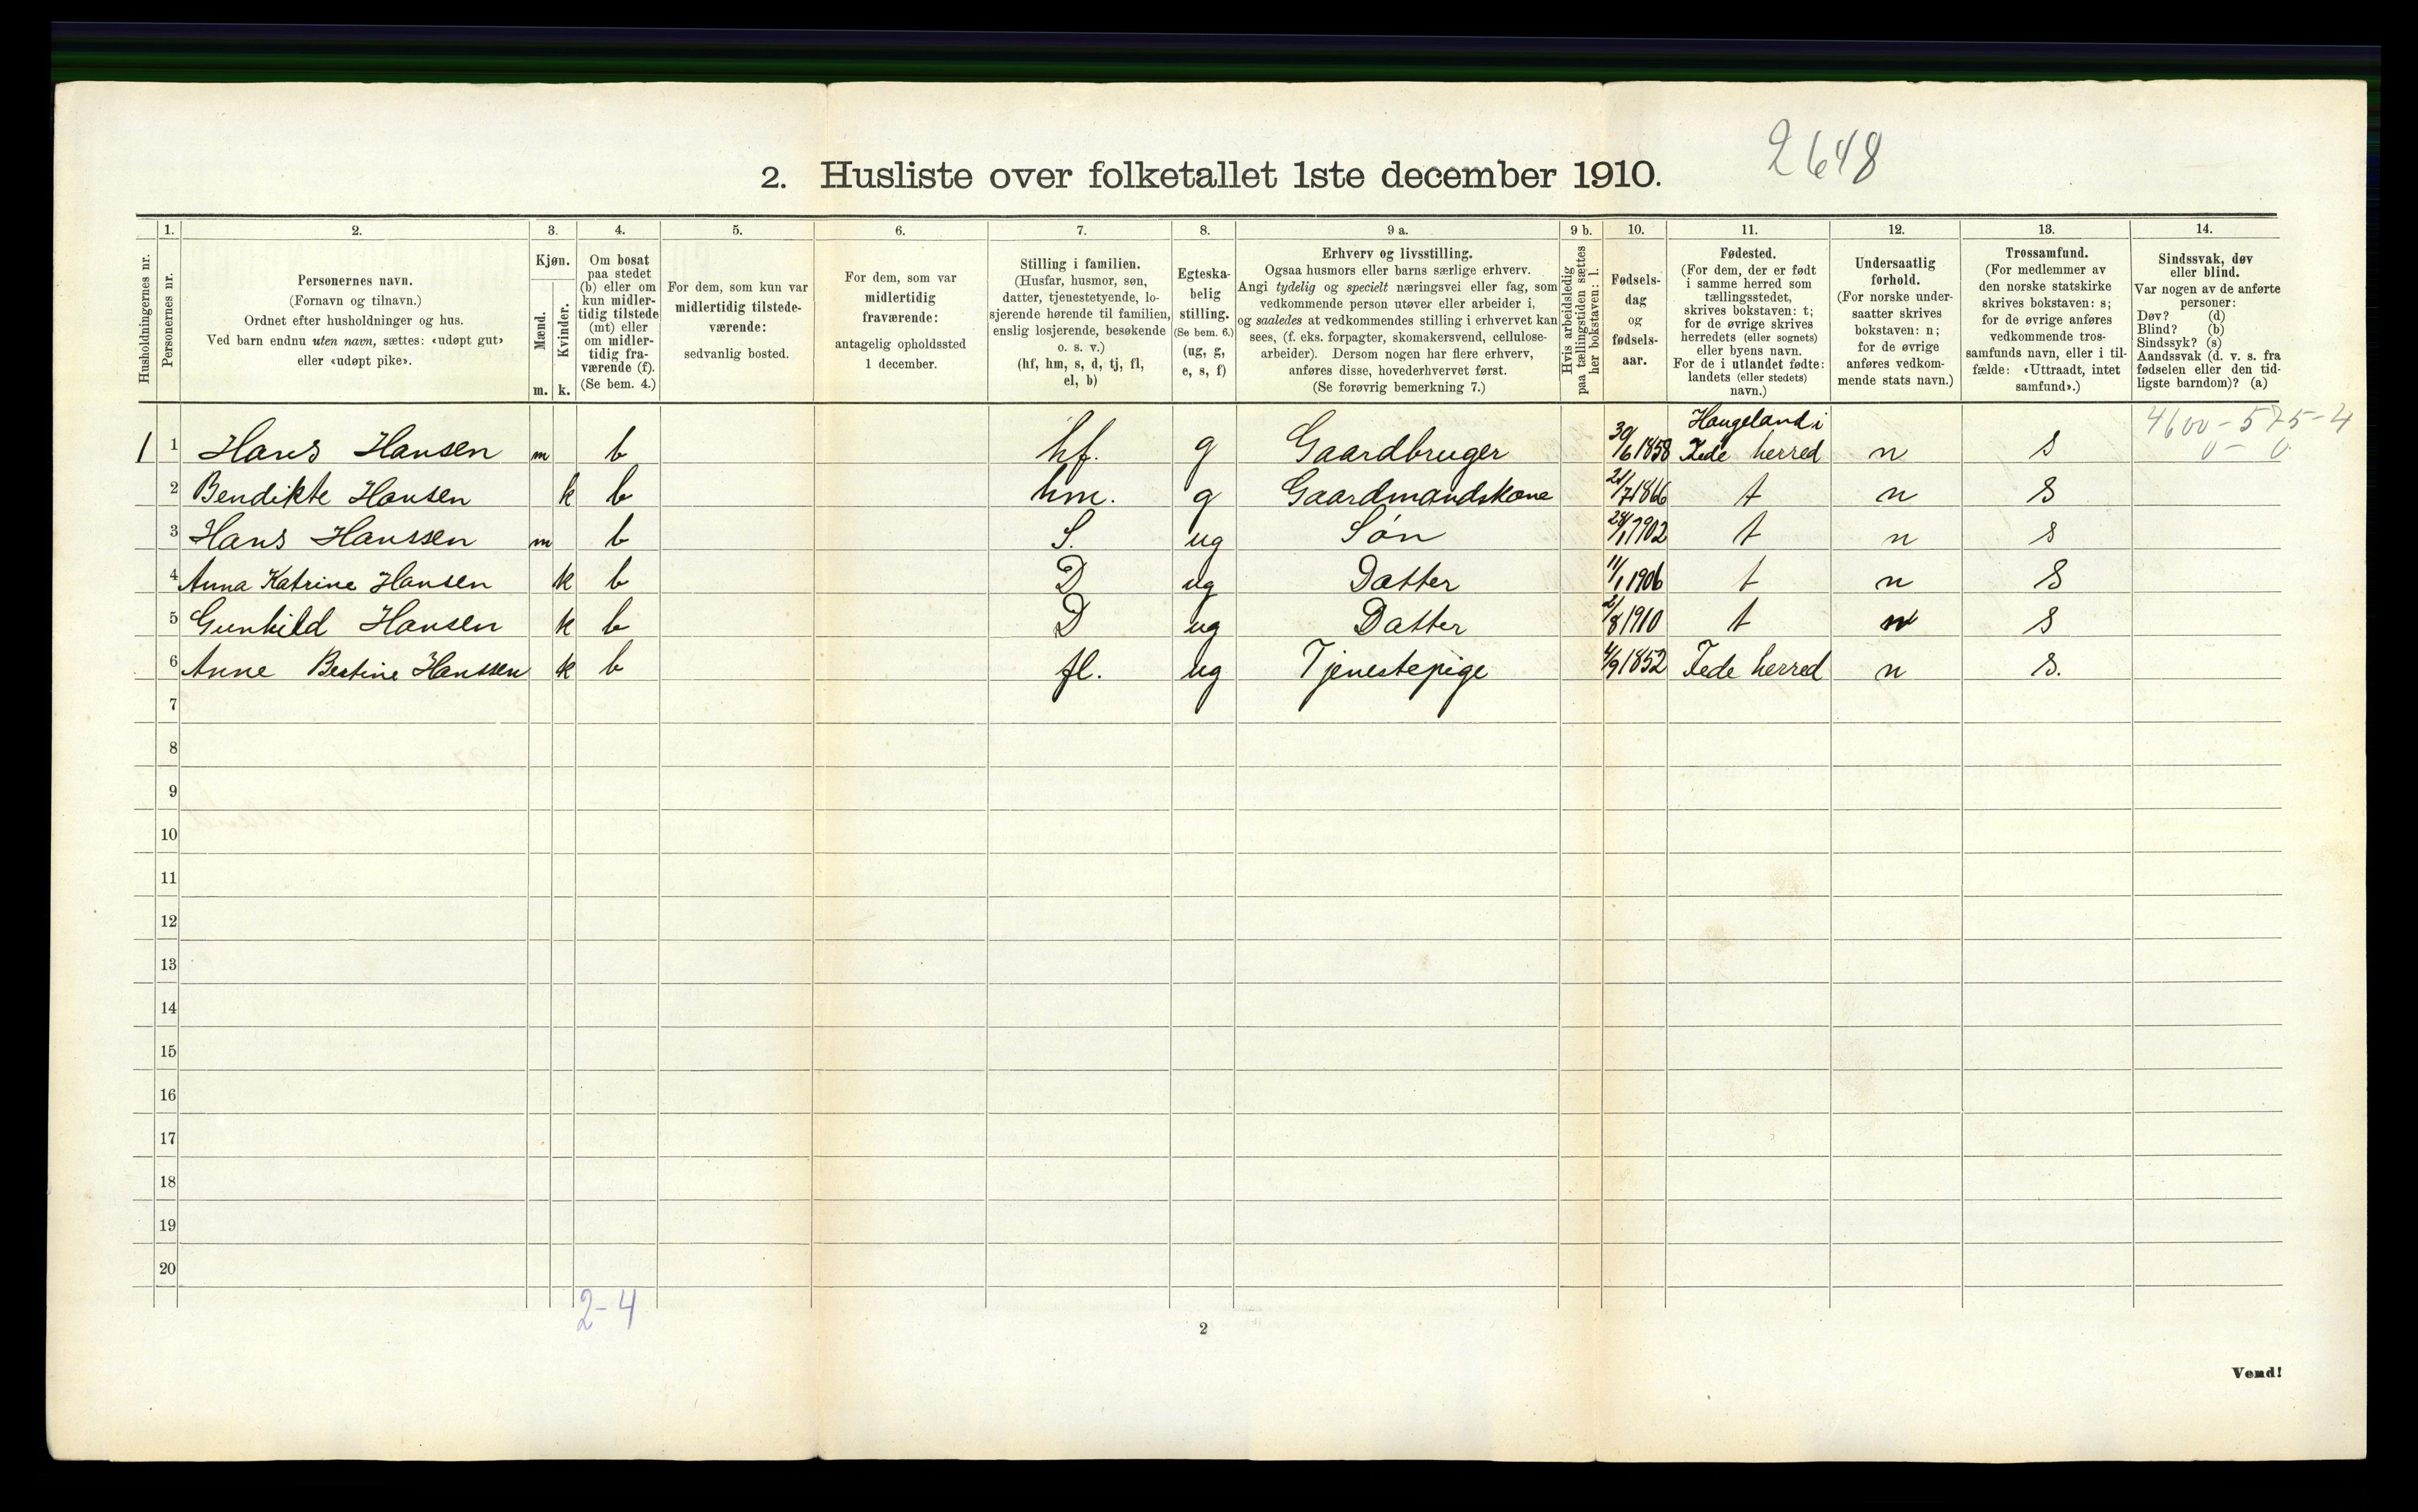 2648
2. Husliste over folketallet 1ste december 1910.
Husholdningernes nr.
1.
Personernes nr.
2.
Personernes navn.
(Fornavn og tilnavn.)
Ordnet efter husholdninger og hus.
Ved barn endnu uten navn, sættes: «udøpt gut»
eller «udøpt pike».
3.
Kjøn.
Mænd.
Kvinder.
m. k.
4.
Om bosat
paa stedet
(b) eller om
kun midler-
tidig tilstede
(mt) eller
om midler-
tidig fra-
værende (f).
(Se bem. 4.)
5.
For dem, som kun var
midlertidig tilstede-
værende:
sedvanlig bosted.
6.
For dem, som var
midlertidig
fraværende:
antagelig opholdssted
1 december.
7.
Stilling i familien.
(Husfar, husmor, søn,
datter, tjenestetyende, lo-
sjerende hørende til familien,
enslig losjerende, besøkende
o. s. v.)
(hf, hm, s, d, tj, fl,
el, b)
8.
Egteska-
belig
stilling.
(Se bem. 6.)
(ug, g,
e, s, f)
9 a.
Erhverv og livsstilling.
Ogsaa husmors eller barns særlige erhverv.
Angi tydelig og specielt næringsvei eller fag, som
vedkommende person utøver eller arbeider i,
og saaledes at vedkommendes stilling i erhvervet kan
sees, (f. eks. forpagter, skomakersvend, cellulose-
arbeider). Dersom nogen har flere erhverv,
anføres disse, hovederhvervet først.
(Se forøvrig bemerkning 7.)
9 b.
Hvis arbeidsledig
paa tællingstiden sættes
her bokstaven: l.
10.
Fødsels-
dag
og
fødsels-
aar.
11.
Fødested.
(For dem, der er født
i samme herred som
tællingsstedet,
skrives bokstaven: t;
for de øvrige skrives
herredets (eller sognets)
eller byens navn.
For de i utlandet fødte:
landets (eller stedets)
navn.)
12.
Undersaatlig
forhold.
(For norske under-
saatter skrives
bokstaven: n;
for de øvrige
anføres vedkom-
mende stats navn.)
13.
Trossamfund.
(For medlemmer av
den norske statskirke
skrives bokstaven: s;
for de øvrige anføres
vedkommende tros-
samfunds navn, eller i til-
fælde: «Uttraadt, intet
samfund».)
14.
Sindssvak, døv
eller blind.
Var nogen av de anførte
personer:
Døv? (d)
Blind? (b)
Sindssyk? (s)
Aandssvak (d. v. s. fra
fødselen eller den tid-
ligste barndom)? (a)
Haugeland i
4600-575-4
0- 0
1 1 Hans Hansen m b hf. g Gaardbruger 30/6 1858 Fede herred n s
2 Bendikte Hansen k b hm. g Gaardmandskone 21/7 1866 t n s
3 Hans Hanssen m b S. ug Søn 1902 t n s
4 Anna Katrine Hansen k b D ug Datter 11/1 1906 t n s
5 Gunhild Hansen k b D ug Datter 2/8 1910 t n s
6 Anne Bertine Hanssen k b fl. ug Tjenestepige 4/9 1852 Fede herred n s.
7
8
9
10
11
12
13
14
15
16
17
18
19
20
2-4
2
Vend!